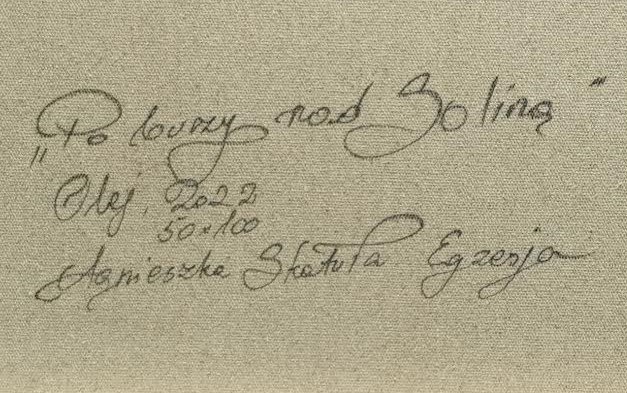 „Po burzy nad Soliną"
Olej, 2022
50x100
Agnieszka Skatuła Egzenja